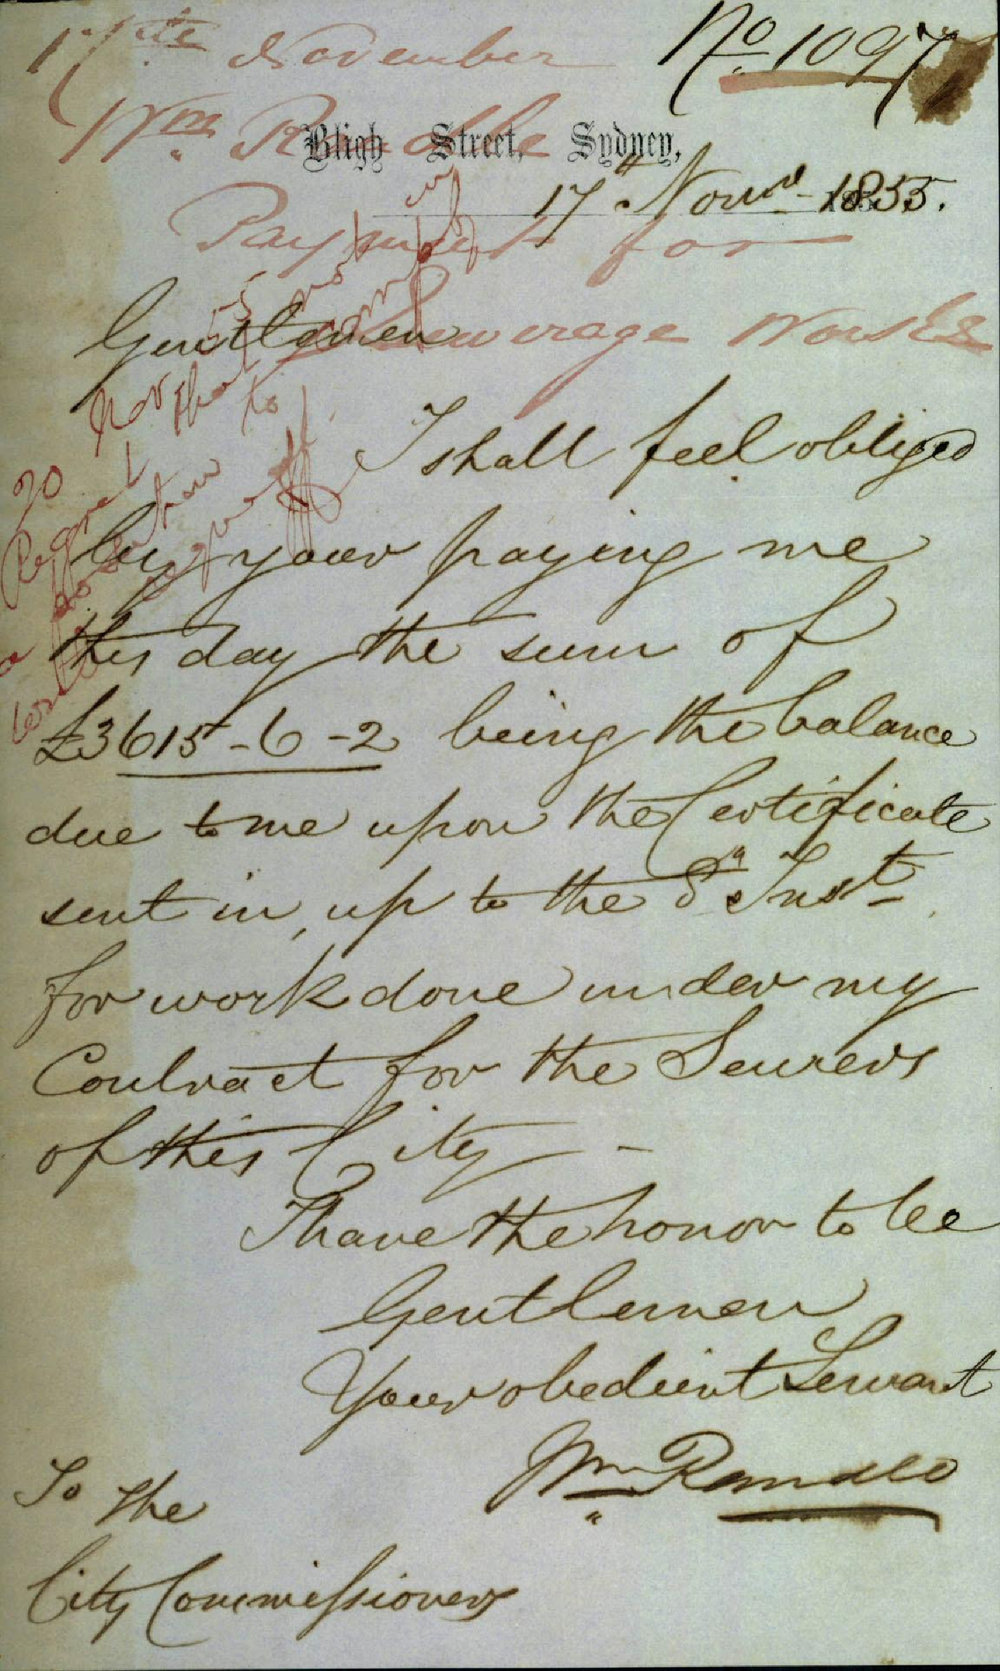 17th November
No 1097
Wm. Randle
Bligh Street, Sydney,
17th Novr 1855.
Payment for
Sewerage Works
Gentlemen
I shall feel obliged
by your paying me
this day the sum of
£3615-6-2 being the balance
due to me upon the Certificate
sent in, up to the Inst.
for work done under my
Contract for the Sewers
of this City -
I have the honor to be
Gentlemen
Your obedient Servant
Wm Randle
To the
City Commissioners
20 Nov 55
Regret that
to comply